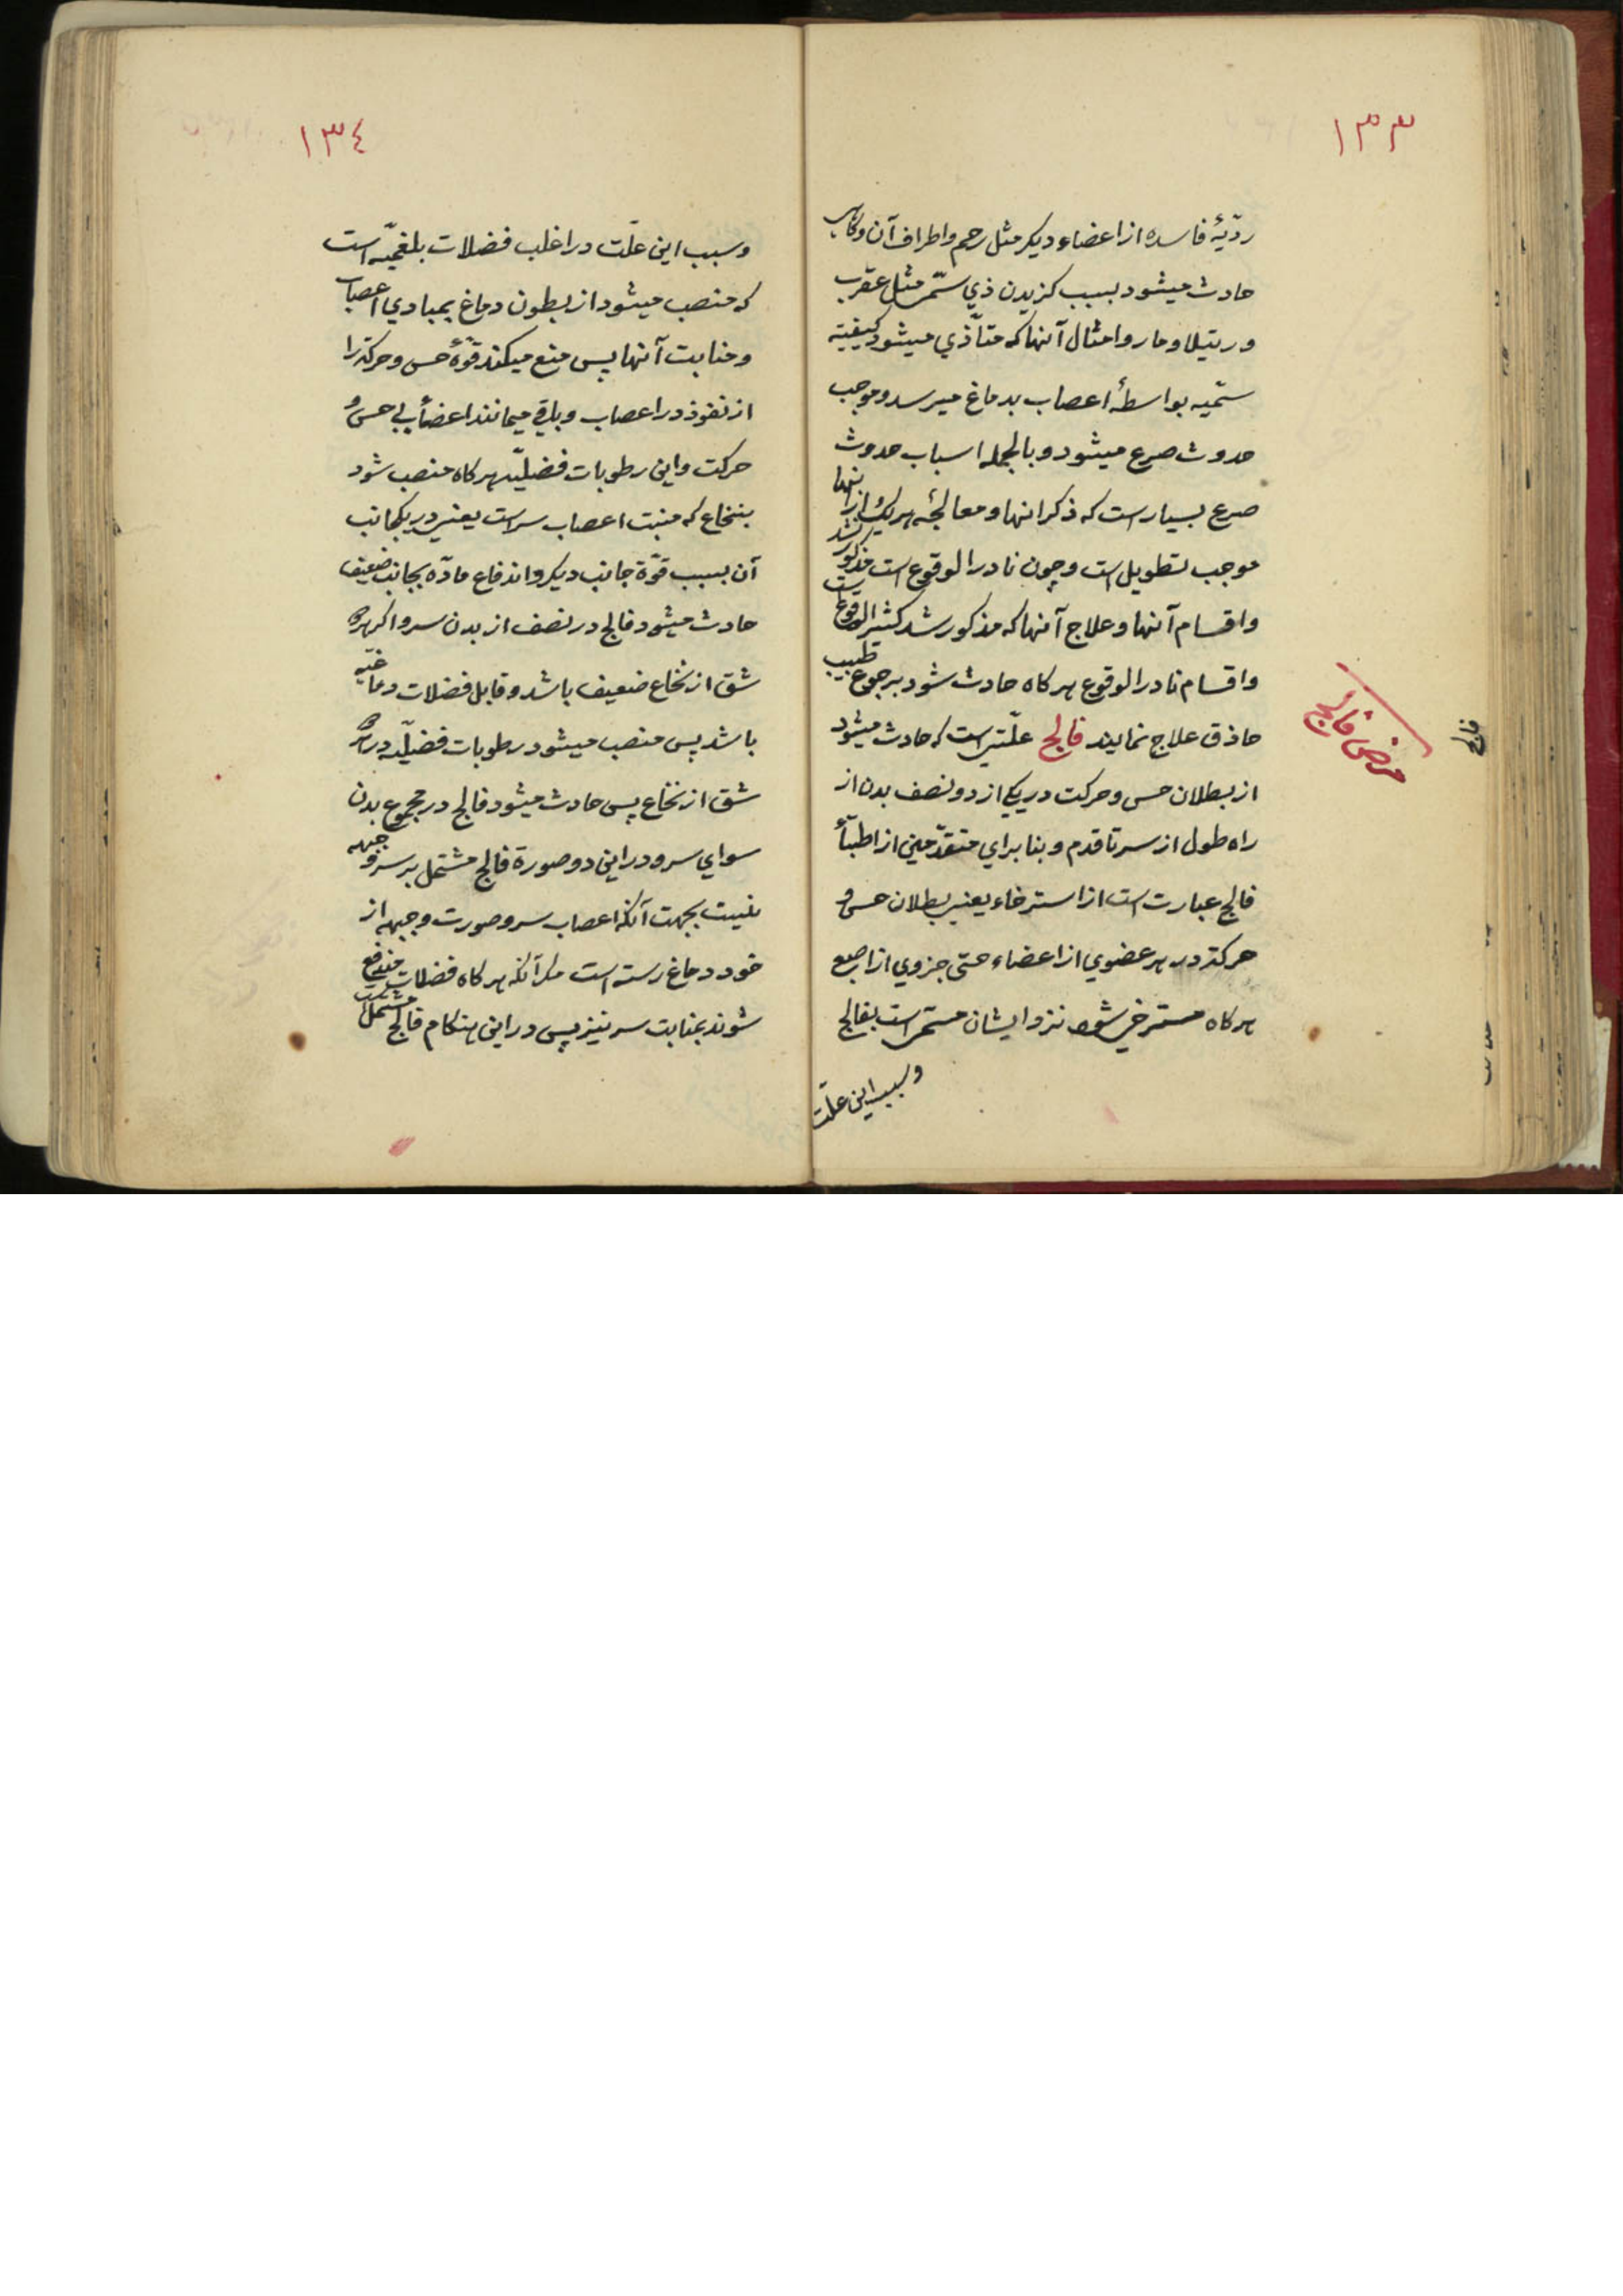 ١٣٣
ردّیهٔ فاسده از اعضاء دیکر مثل رحم و اطراف آن و کاهی
حادث میشود بسبب کزیدن ذي سمّ مثل عقرب
و رتیلا و مار و امثال آنها که متأذّي میشود کیفیّته
سمّیه بواسطهٔ اعصاب بدماغ میرسد و موجب
حدوث صرع میشود و بالجمله اسباب حدوث
صرع بسیار است که ذکر انها و معالجهٔ هر یك از انها
موجب تطویل است و چون نادر الوقوع است مذکور نشد
و اقسام آنها و علاج آنها که مذکور شد کثیر الوقوع است
و اقسام نادر الوقوع هر کاه حادث شود برجوع طبیب
حاذق علاج نمایند فالج علّتی است که حادث میشود
از بطلان حس و حرکت در یکی از دو نصف بدن از
راه طول از سر تا قدم و بنا براي متقدّمین از اطبّاء
فالج عبارت است از استرخاء یعنی بطلان حس و
حرکة در هر عضوي از اعضاء حتی جزوي از اصبع
هر کاه مسترخي شود نزد ایشان مستمر است بفالج
و سبب این علّت
مرض فالج
فالج
١٣٤
و سبب این علّت در اغلب فضلات بلغمیّه است
که منصب میشود از بطون دماغ بمبادي اعصاب
و منابت آنها پس منع میکند قوّهٔ حس و حرکة را
از نفوذ در اعصاب و باقی میمانند اعضا بی حس و
حرکت و این رطوبات فضلیّه هر کاه منصب شود
بنخاع که منبت اعصاب سر است یعنی در یکجانب
آن بسبب قوّة جانب دیکر و اندفاع مادّه بجانب ضعیف
حادث میشود فالج در نصف از بدن سر و اکر هر دو
شق از نخاع ضعیف باشد و قابل فضلات دماغیّه
باشد پس منصب میشود رطوبات فضلیّه در هر دو
شق از نخاع پس حادث میشود فالج در مجموع بدن
سواي سر و در این دو صورة فالج مشتمل بر سر و جبهه
نیست بجهت آنکه اعصاب سر و صورت و جبهه از
خود دماغ رسته است مکر آنکه هر کاه فضلات مندفع
شوند بمنابت سر نیز پس در این هنکام فالج مشتمل است